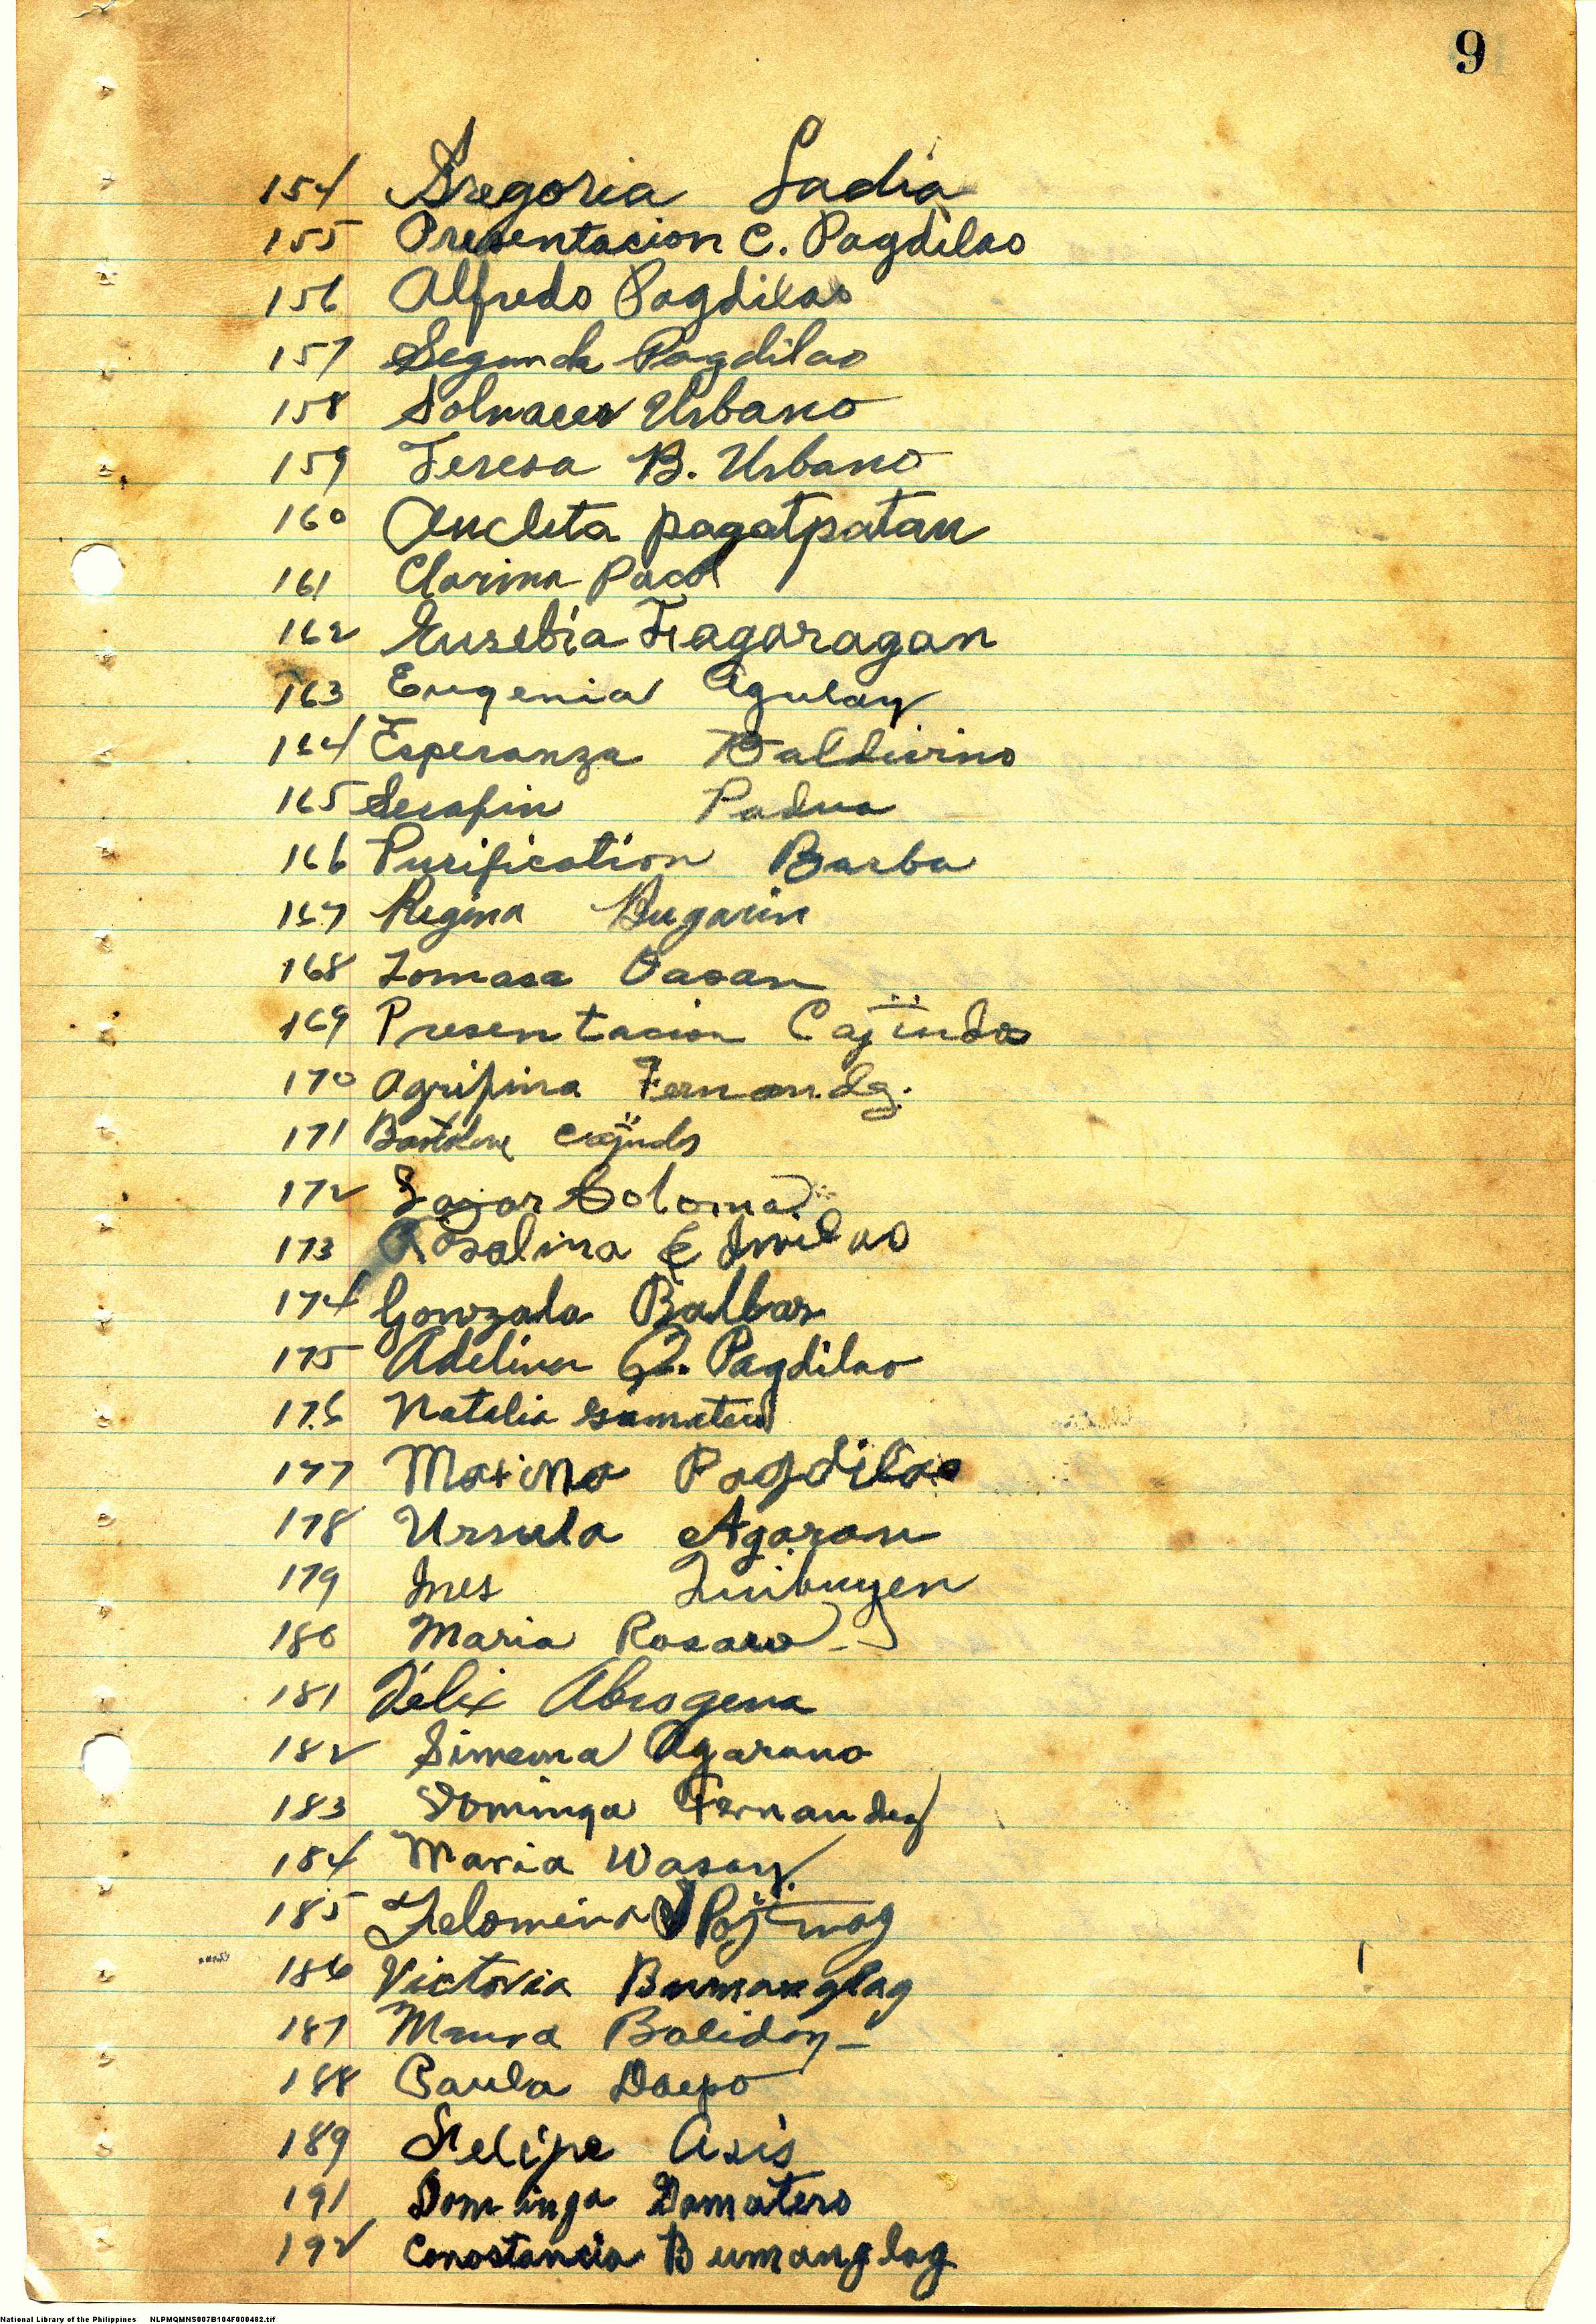 9
154 Gregoria Sadia
155 Presentacion C. Pagdilao
156 Alfredo Pagdilao
157 Segunda Pagdilao
158 Urbano
159 Teresa B. Urbano
160 Ancleta pagatpatan
161 Clarina Pacol
162 Eusebia Tragaragan
163 Eugenia Agulay
164 Esperanza Baldivino
165 Serafin Padua
166 Purification Barba
167 Regina Bugarin
168 Tomasa Oasan
169 Presentacion Cajindos
170 Agripina Fernandz.
171 Cajindos
172 Lazar Coloma
173 Rosalina E
174 Gonzala Balbas
175 Adelina Q. Pagdilao
176 Natalia
177 Maxima Pagdilao
178 Ursula Agaran
179 Ines Quibuyen
180 Maria Rosaro
181 Felix Abrogena
182 Simeona Agarano
183 Dominga Fernandez
184 Maria Wasay
185 Felomena Pajinag
186 Victoria Bumanglag
187 Maura Baliday
188 Paula Daepo
189 Felipe Asis
191 Dominga Domatero
192 Constancia Bumanglag
National Library of the Philippines NLPMQMNS007B104F000482.tif